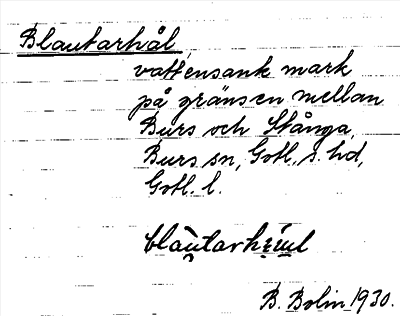 Blautarhål,
vattensank mark
på gränsen mellan
Burs och Stånga,
Burs sn, Gotl. s. hd,
Gotl. l.
B. Bolin 1930.